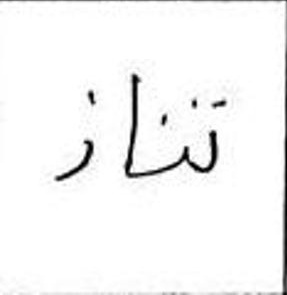 تناز